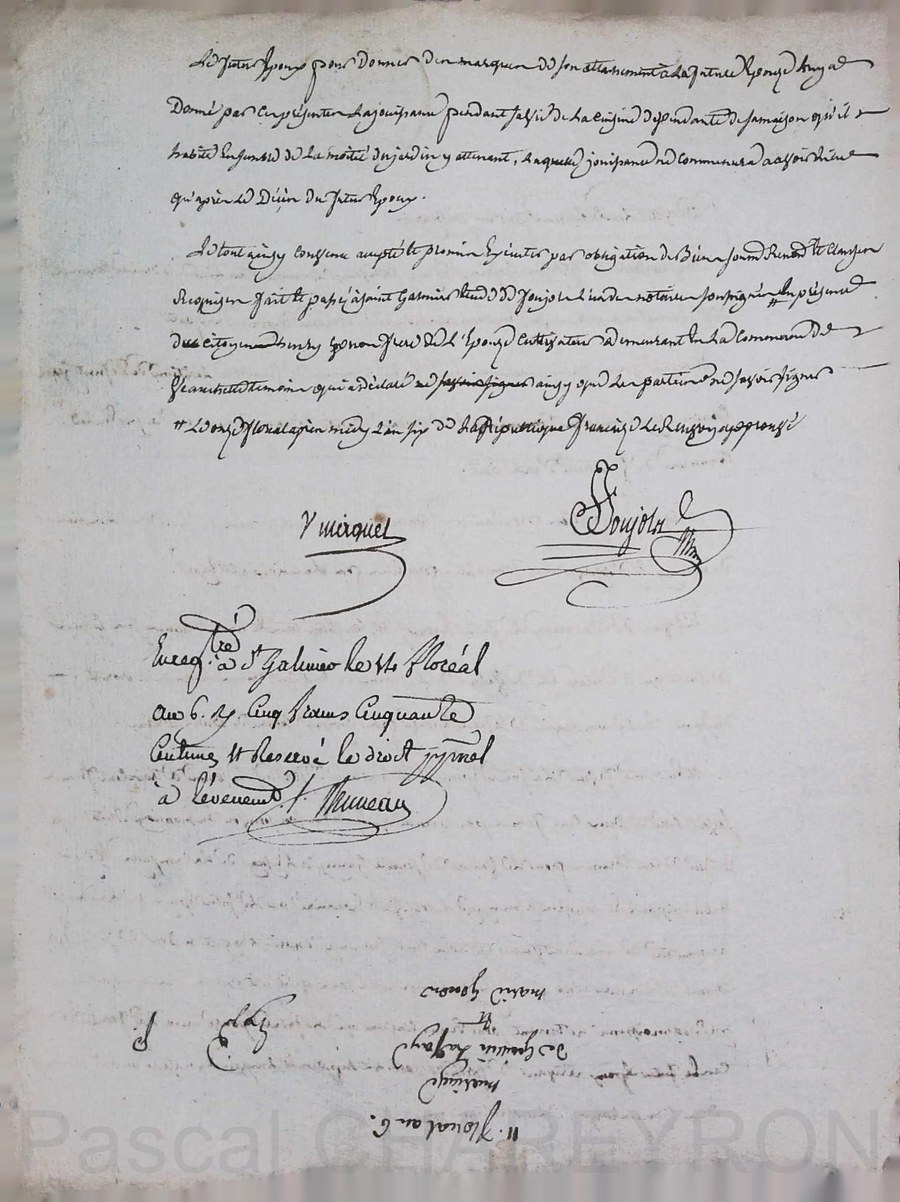 Le futur Epoux pour donner des marques de son attachement à la future Epouse luy a
Donné par ces présentes la jouissance pendant sa vie de la cuisine dépendante de sa maison qu'il
habite Ensemble de la moitié du jardin y attenant, laquelle jouissance ne commencera a avoir lieu
qu'après le Décès du futur Epoux.
Le tout ainsy convenu accepté et promis Exécuter par obligation de Biens soumn Renonon et Clauses
Requises fait et passé à saint Galmier Etude de Joujole l'un des notaires soussignés " En présence
du citoyen frère de l'Epouse Cultivateur demeurant En la Commune de
témoin qui a déclaré ne savoir signer ainsy que les parties ne savoir signer
" Le onze floréal après midy l'an six de la République française
Vmirquet
Joujole
Enregtré à St Galmier le 14 floréal
an 6. R. Cinq francs Cinquante
Centimes et Réservé le droit ppnel
à l'évenemt. /. Bruneau
marie
et
de
mariage
11. floreal an 6.
Pascal CHAREYRON